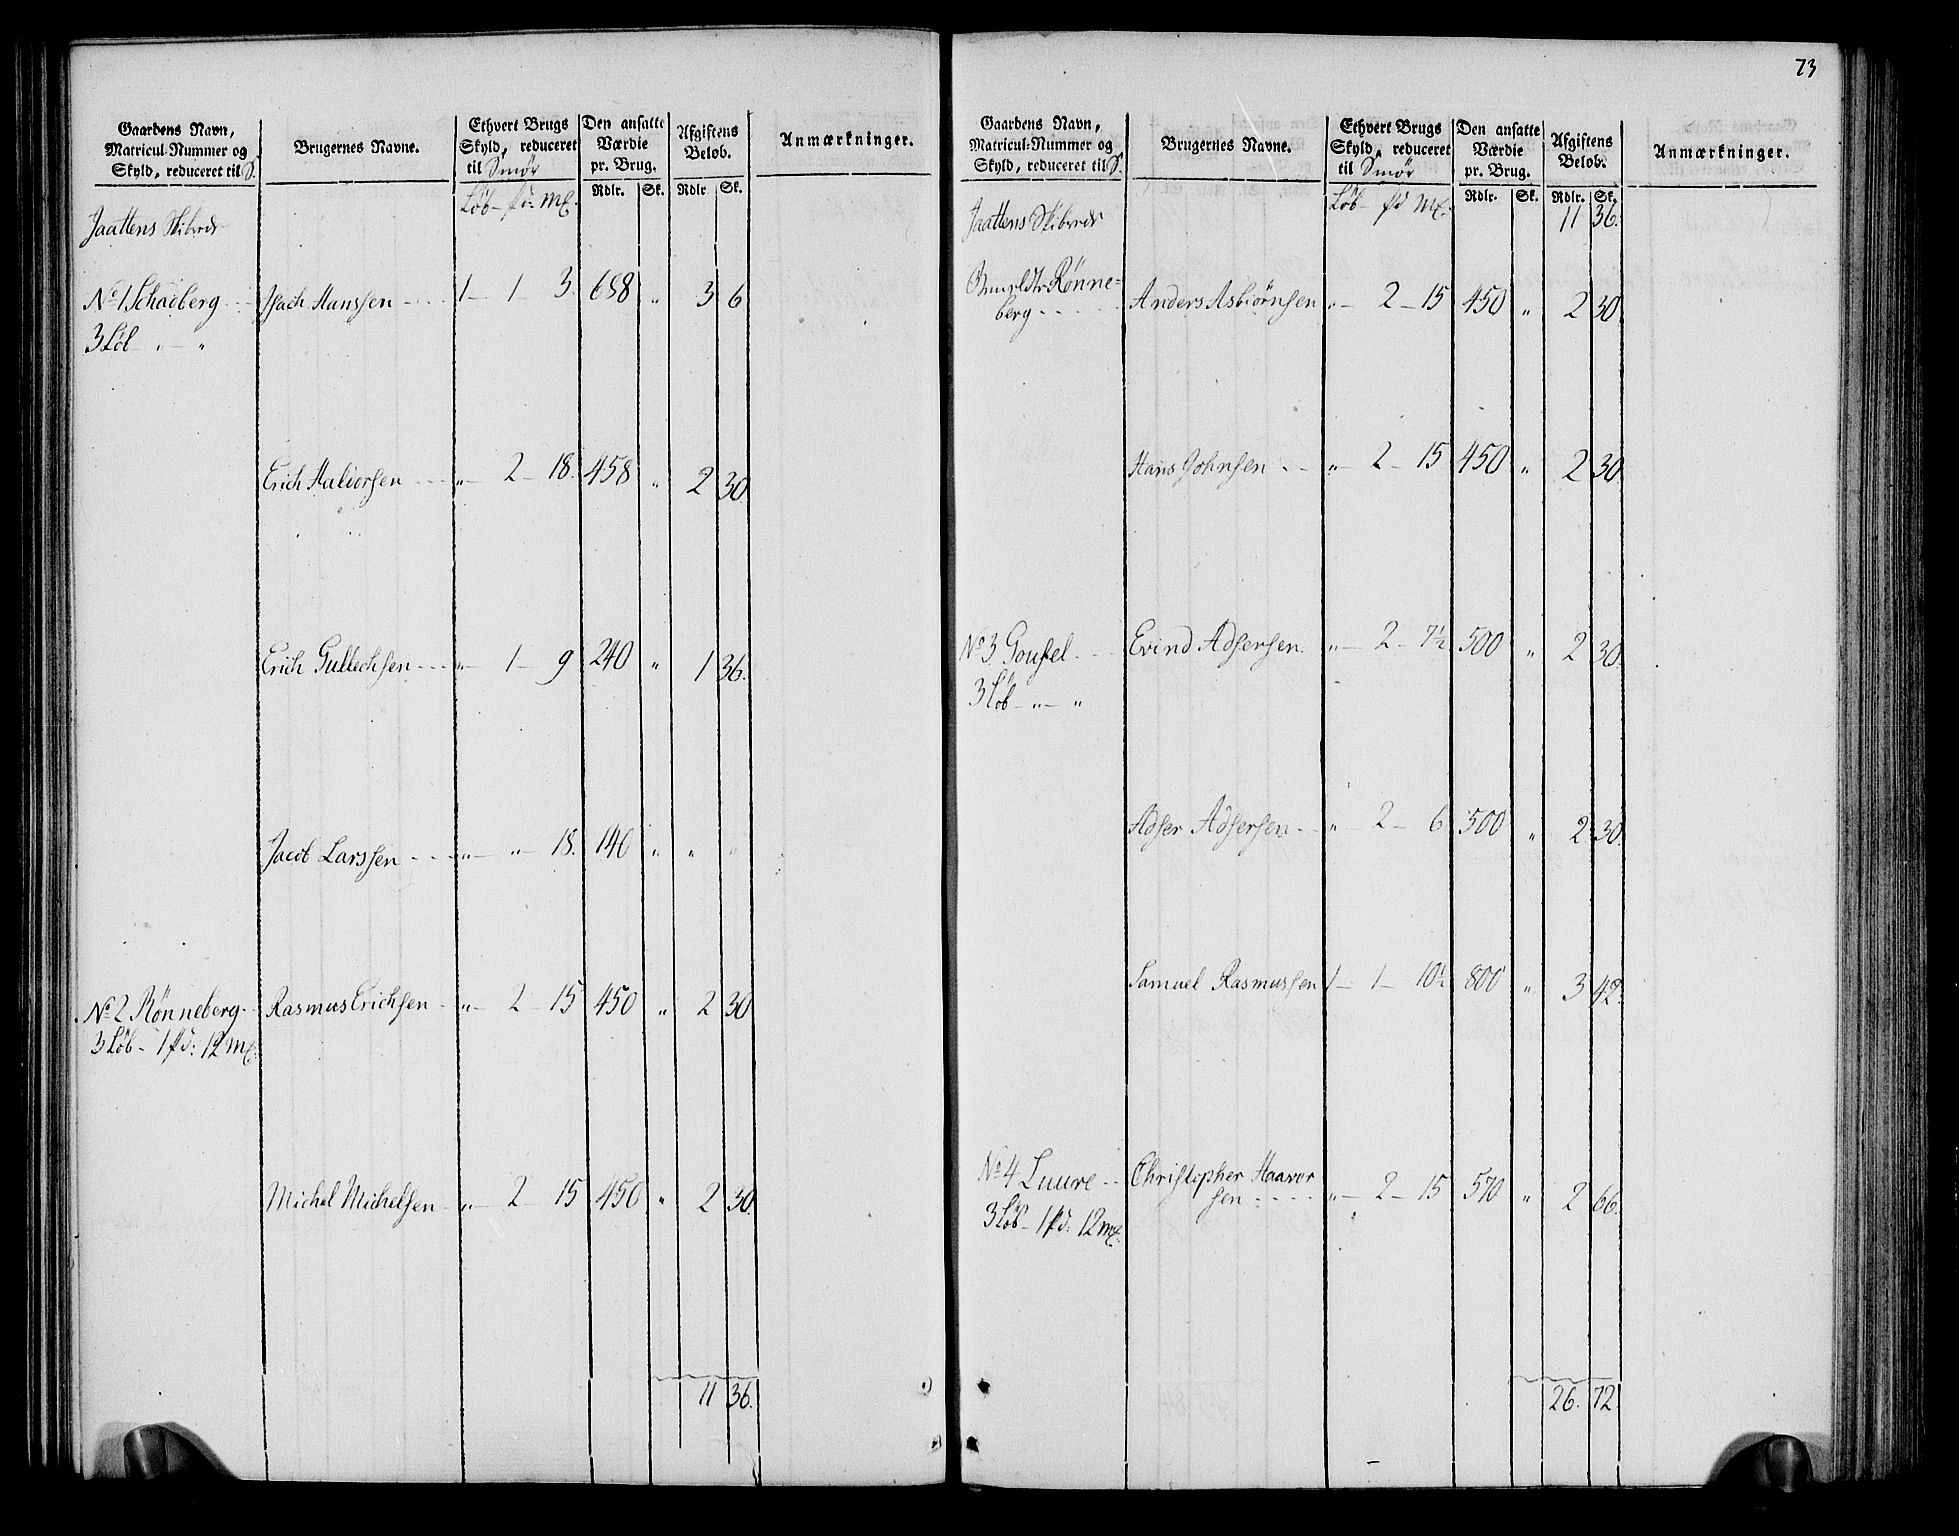 Gaardens Navn,
Matricul-Nummer og
Skyld, reduceret til S.
Brugernes Navne.
Ethvert Brugs
Skyld, reduceret
til Smör
Den ansatte
Værdie
pr. Brug.
Afgiftens
Beløb.
Anmærkninger.
Løb - pd: mk.
Rdlr. Sk. Rdlr. Sk.
Jaattens Skibrede
No 1 Schaeberg Isach Hanssen 1 - 1 - 3. 688 „ 3 6
3 Løb „ - „
Erich Halvorsen „ - 2 - 18. 458 „ 2 30
Erich Gullechsen „ - 1 - 9 240 „ 1 36.
Jacob Larssen „ - „ - 18. 140 „ „ „
No 2 Rønneberg Rasmus Erichsen „ - 2 - 15 450 „ 2 30
3 Løb - 1 pd: 12 mk.
Michel Michelsen „ - 2 - 15 450 „ 2 30.
11 36.
73
Gaardens Navn,
Matricul-Nummer og
Skyld, reduceret til S.
Brugernes Navne.
Ethvert Brugs
Skyld, reduceret
til Smör
Den ansatte
Værdie
pr. Brug.
Afgiftens
Beløb.
Anmærkninger.
Løb - pd mk.
Rdlr. Sk. Rdlr. Sk.
Jaattens Skibrede 11 36.
Rønne=
berg Anders Asbiörnsen „ - 2 - 15 450 „ 2 30
Hans Johnsen „ - 2 - 15 450 „ 2 30
No 3 Gousel Evind Adsersen „ - 2 - 7½ 500 „ 2 30.
3 Løb - „ - „
Adser Adsersen „ - 2 - 6 500 „ 2 30.
Samuel Rasmussen 1 - 1 - 10½ 800 „ 3 42.
No 4 Luure Christopher Haavor
sen „ - 2 - 15 570 „ 2 66.
3 Løb - 1 pd: 12 mk.
26. 72.